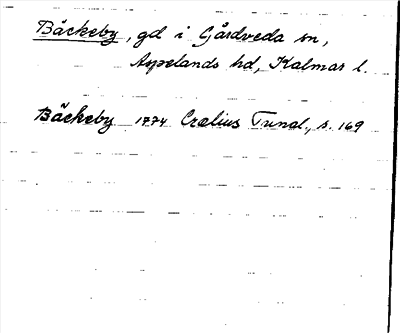 Bäckeby, gd i Gårdveda sn,
Aspelands hd, Kalmar l.
Bäckeby 1774 Crælius Tunal., s. 169